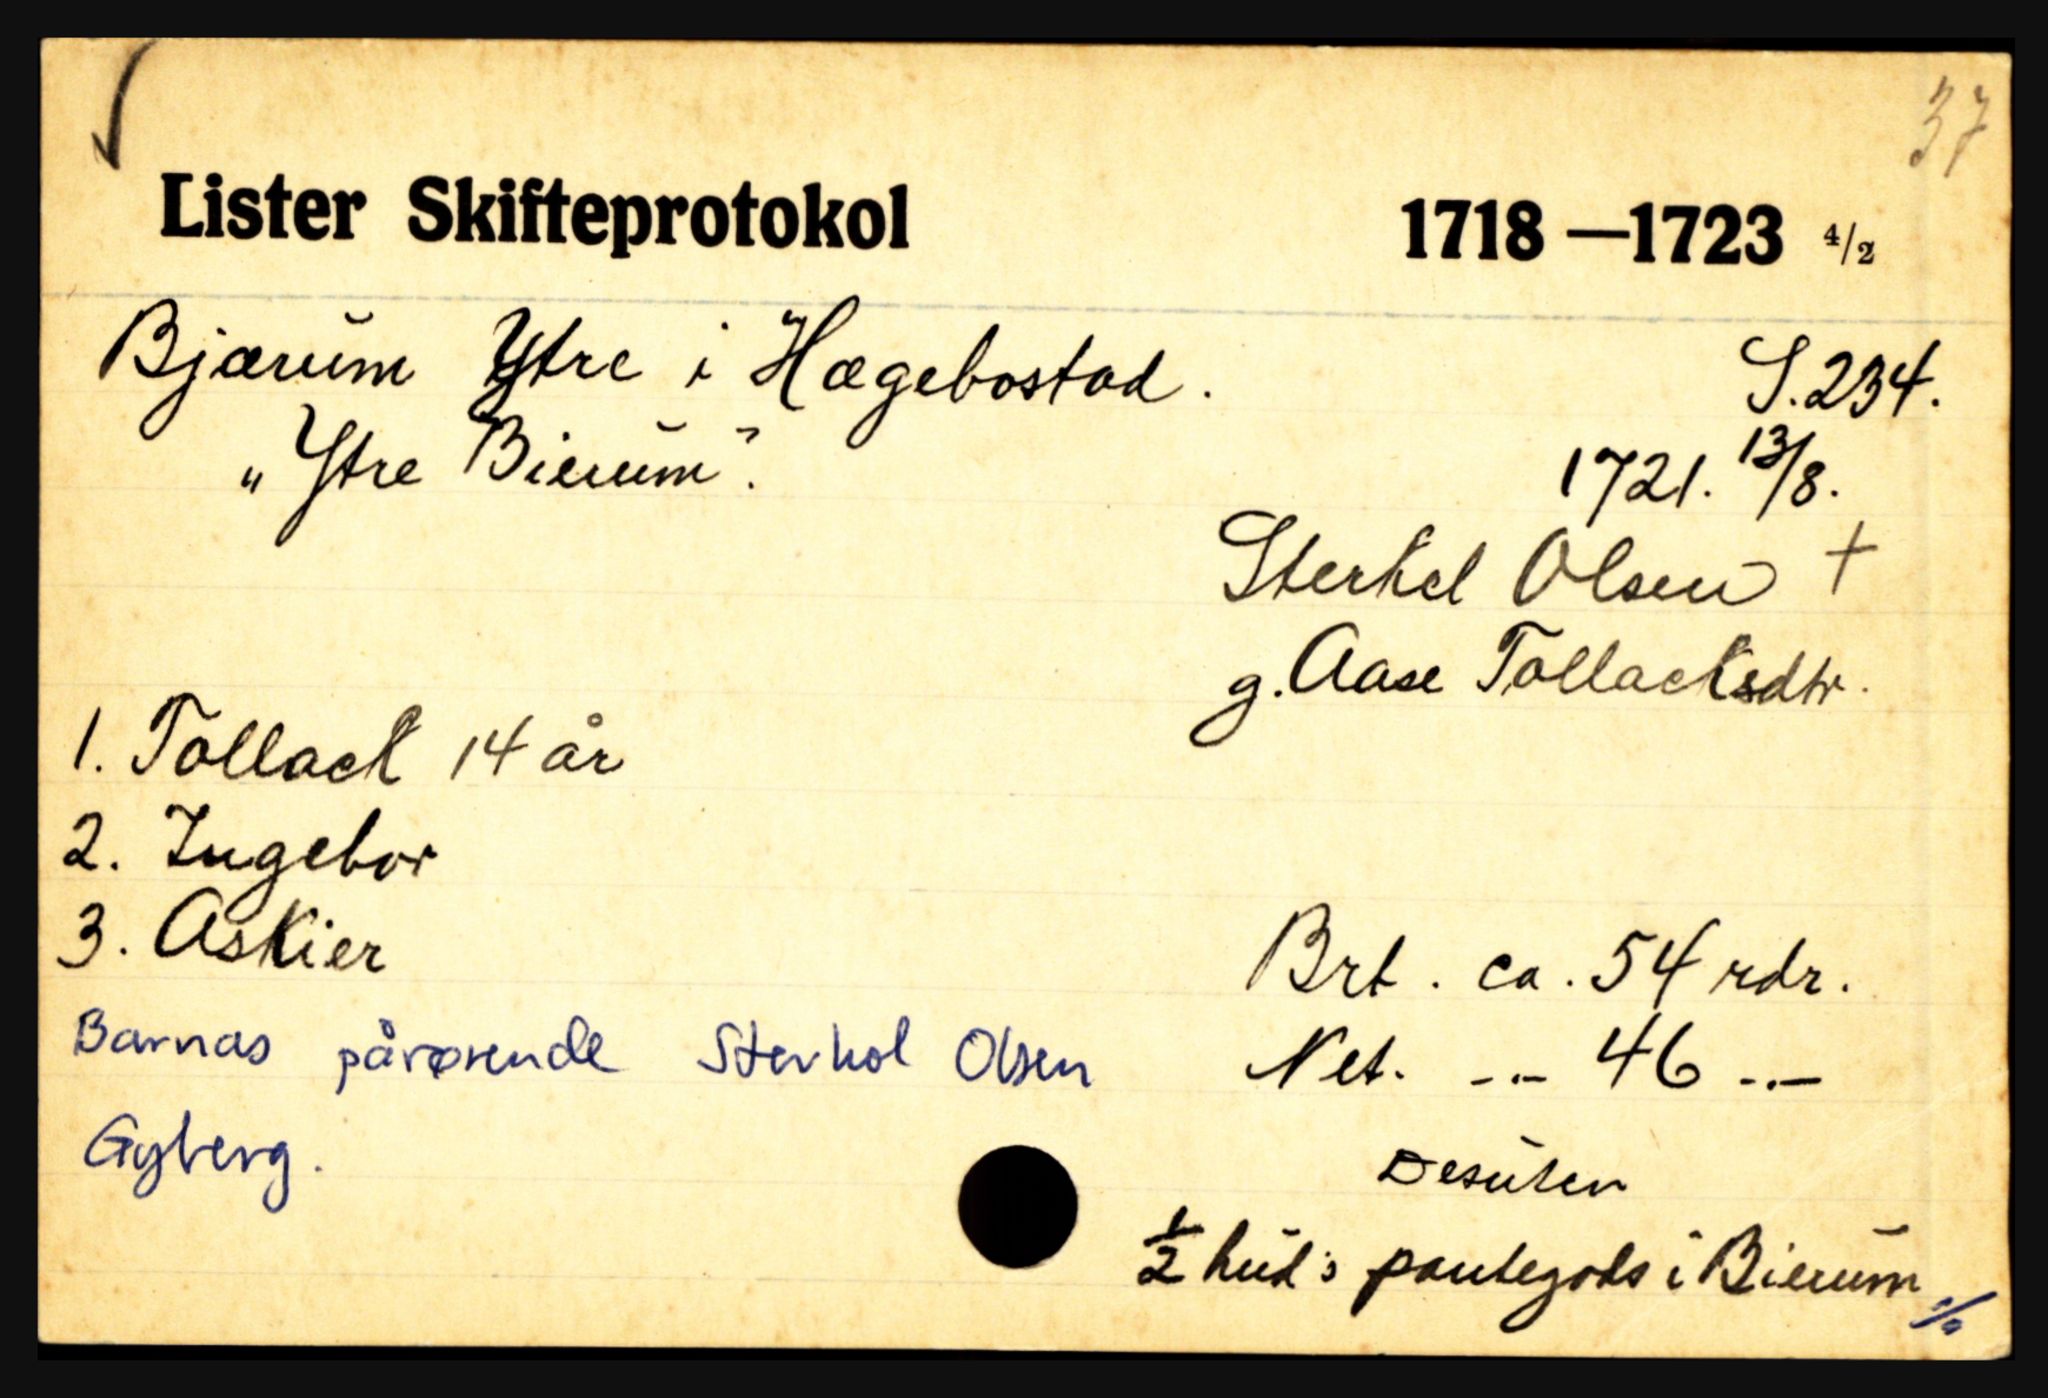 37
Lister Skifteprotokol 1718—1723 4/2
Bjærum Ytre i Hægebostad. S. 234.
„Ytre Bierum". 1721. 13/8.
Sterkel Olsen +
g. Aase Tollacksdtr.
1. Tollack 14 år
2. Ingebor
3. Askier
Brt. ca. 54 rdr.
Barnas pårørende Sterkol Olsen
Net. -.- 46 -.-
Gyberg.
Desuten
1/2 hud's pantegods i Bierum